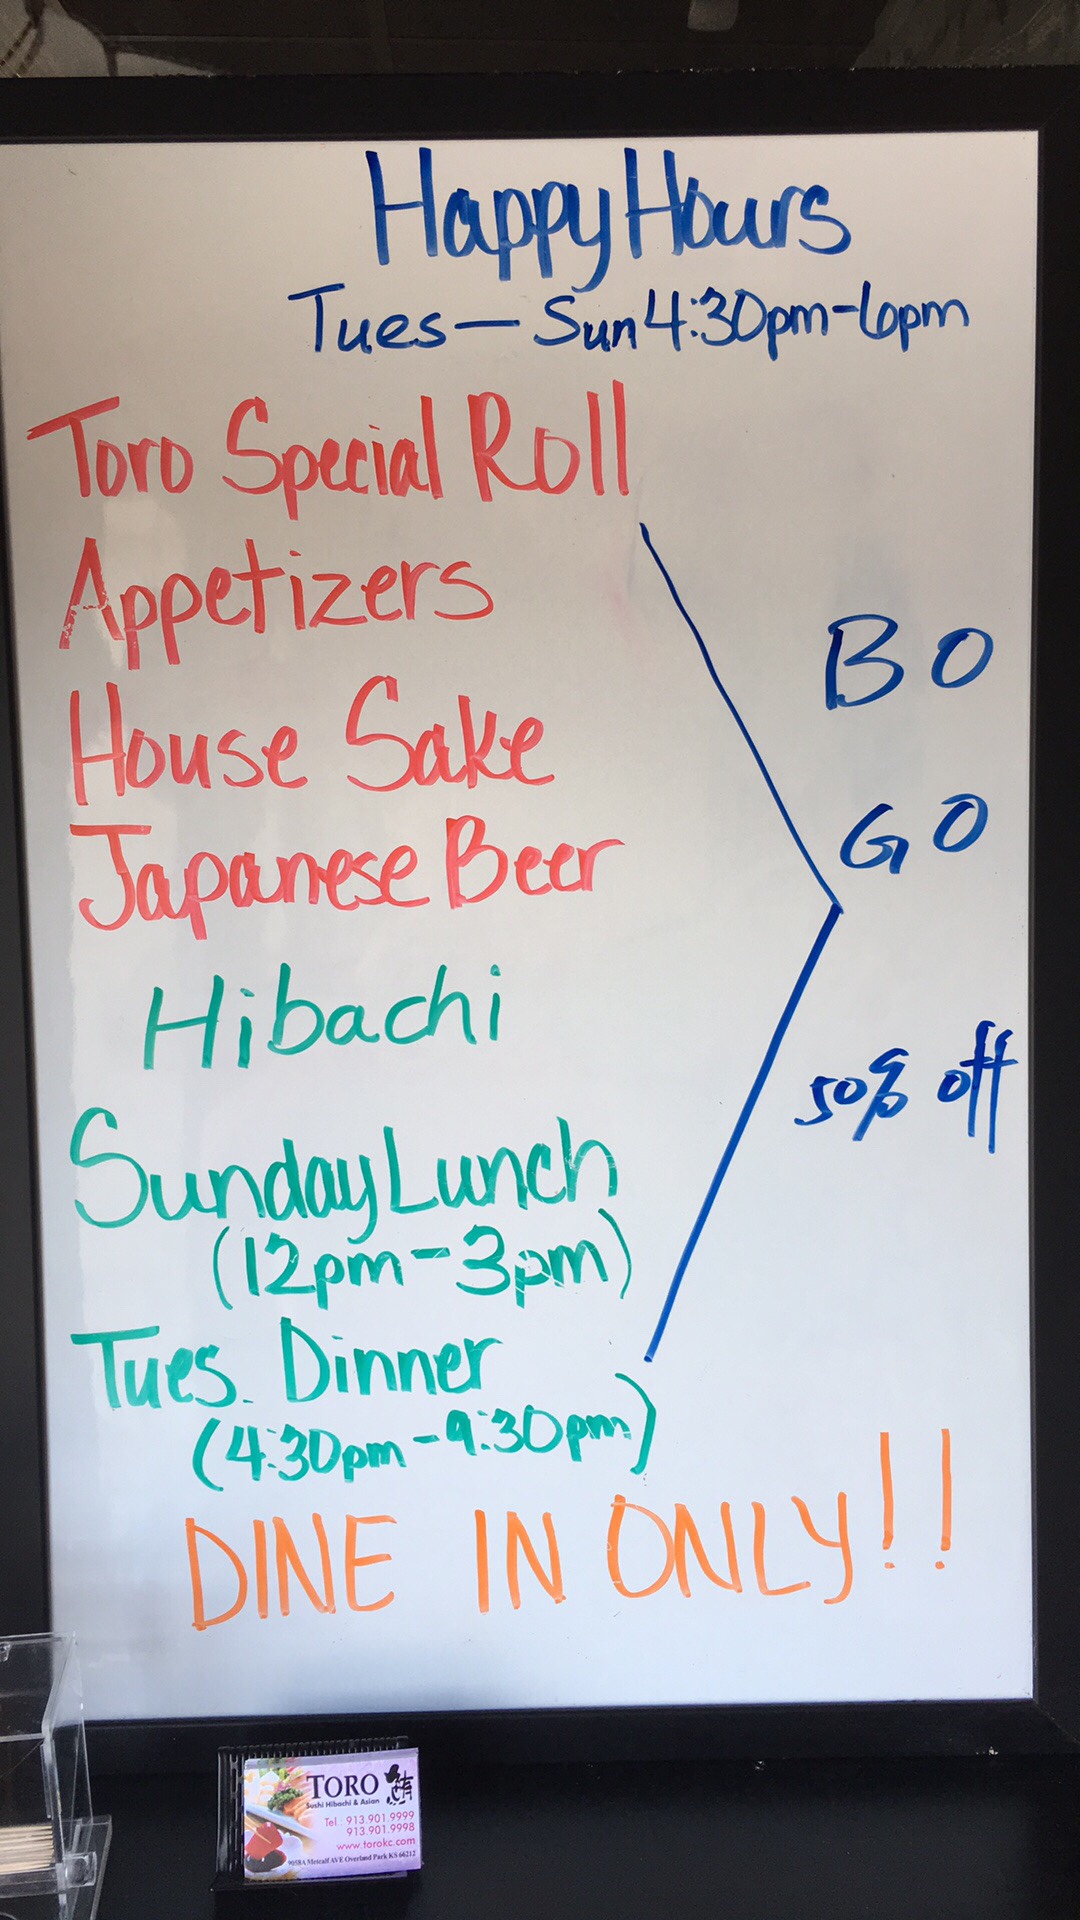 Happy Hours
Tues — Sun 4:30pm-6pm
Toro Special Roll
Appetizers
House Sake
Japanese Beer
BO
GO
50% off
Hibachi
Sunday Lunch
(12pm-3pm)
Tues. Dinner
(4:30pm-9:30pm)
DINE IN ONLY!!
TORO
Sushi Hibachi & Asian
Tel : 913.901.9999
913.901.9998
www.torokc.com
9058A Metcalf AVE Overland Park KS 66212